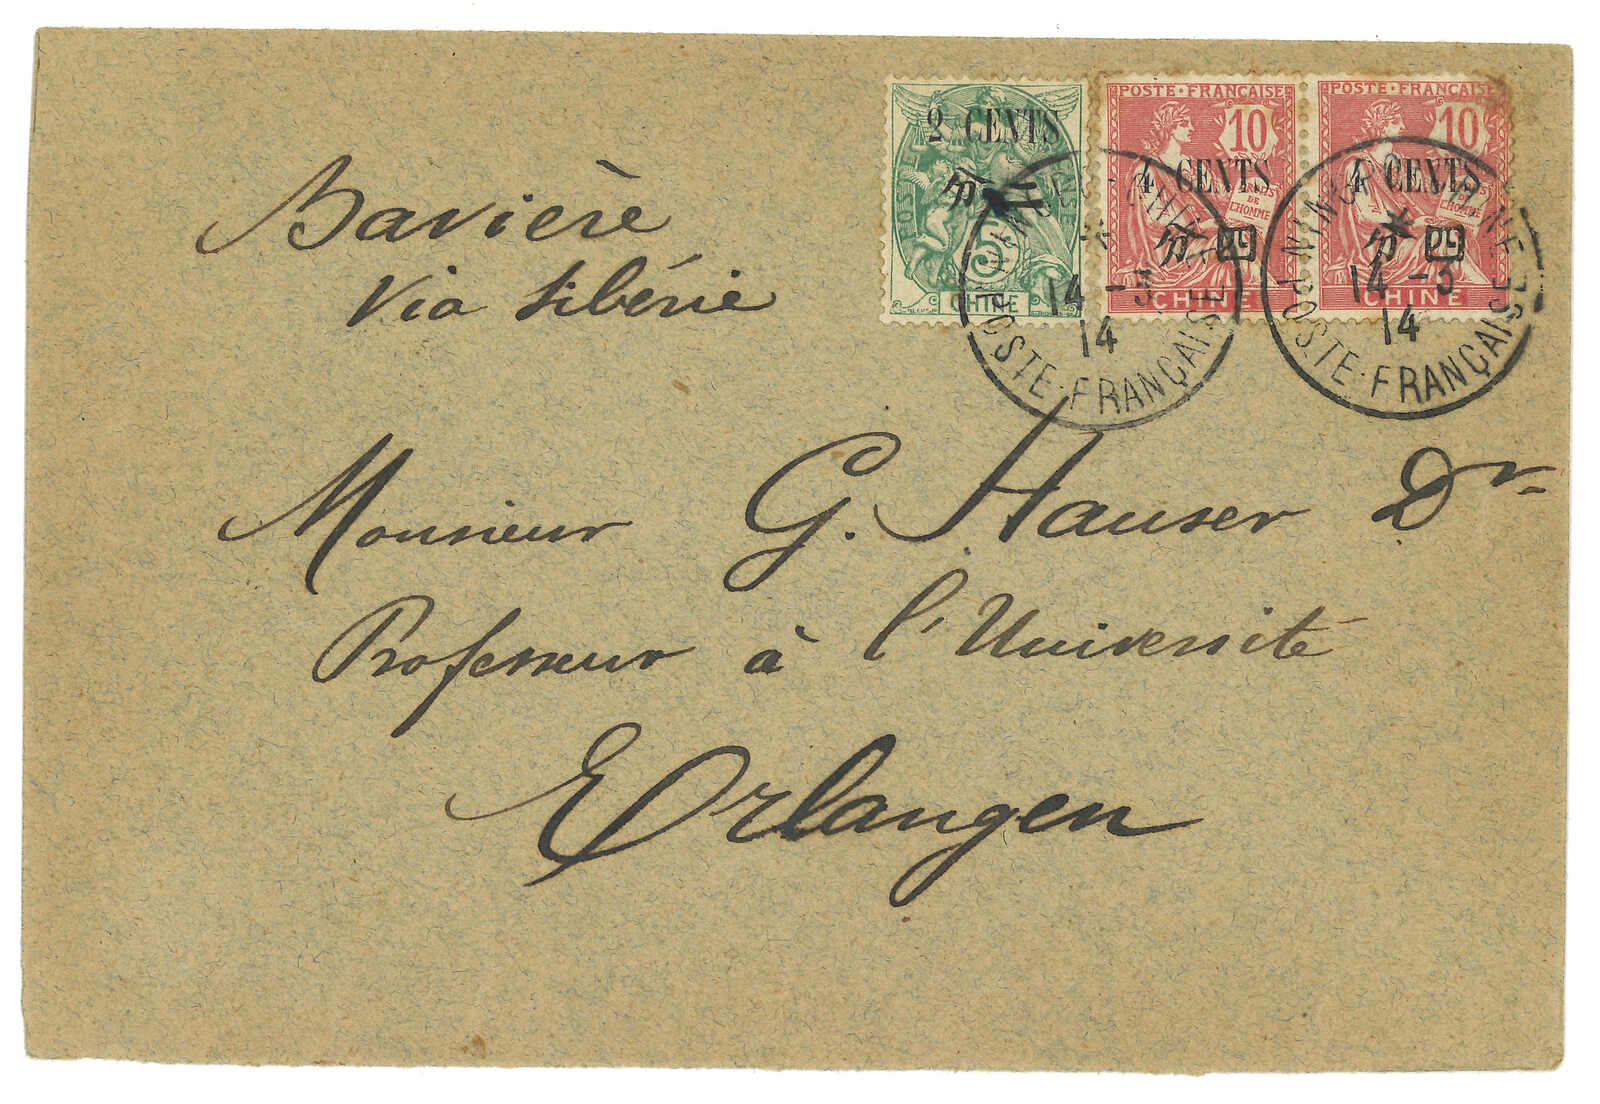 Bavière
Via Sibérie
2 CENTS
分二
5
POSTE
CHINE
POSTE · FRANÇAISE
10
4 CENTS
DROITS
DE
L'HOMME
分四
CHINE
POSTE · FRANÇAISE
10
4 CENTS
DE
L'HOMME
分四
CHINE
NING-PO CHINE
14 -3
14
POSTE-FRANÇAISE
NING-PO CHINE
14 -3
14
POSTE-FRANÇAISE
Monsieur G. Hauser Dr
Professeur à l'Université
Erlangen